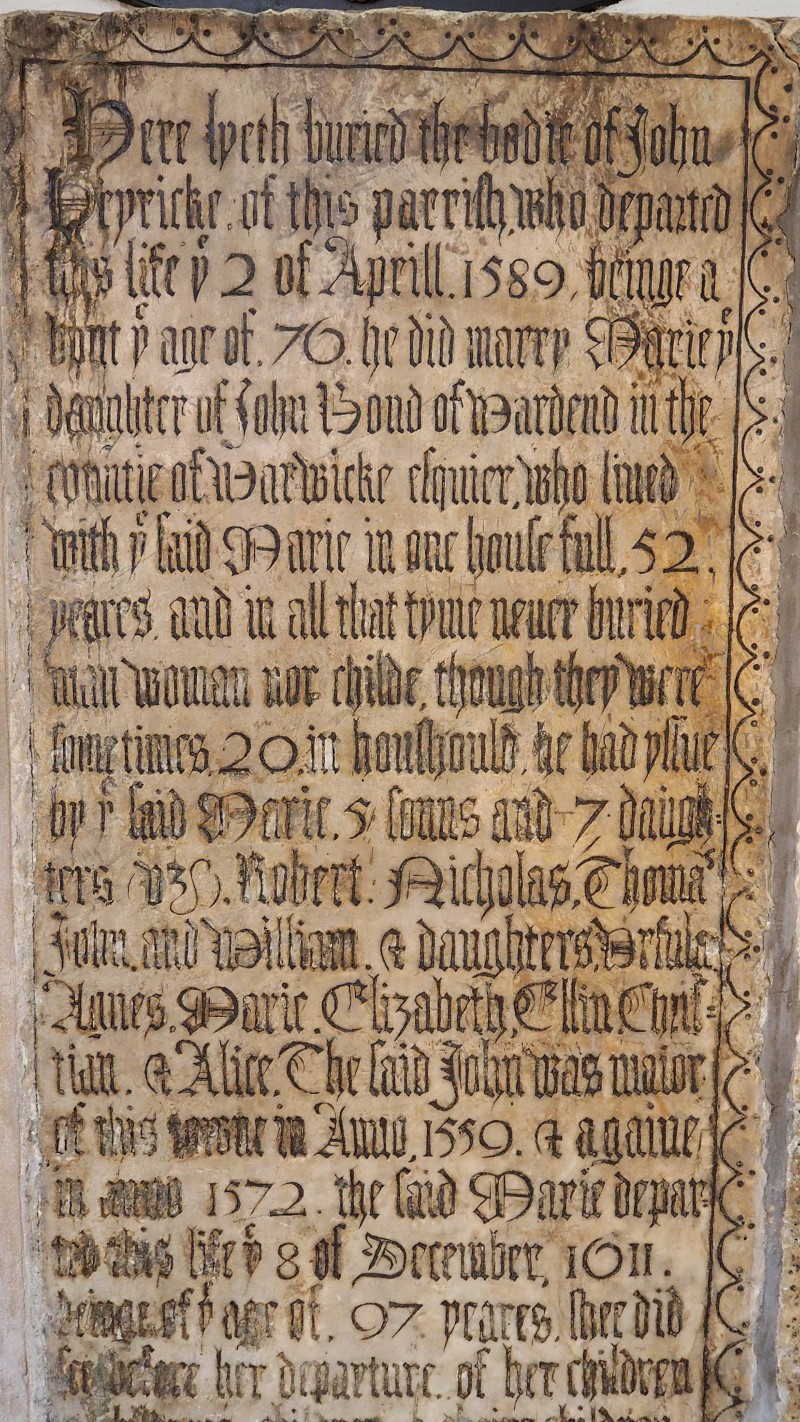 Here lyeth buried the bodie of John
Heyricke, of this parrish, who departed
this life yͤ 2 of Aprill. 1589, beinge a
bout yͤ age of. 76. he did marry Marie yͤ
daughter of John Bond of Wardend in the
countie of Warwicke esquier, who liued
with yͤ said Marie in one house full, 52.
yeares. and in all that tyme neuer buried
man woman nor childe, though they were
sometimes. 20. in houshould, he had yssue
by yͤ said Marie. 5 sonns and 7 daugh-
ters vz. Robert. Nicholas, Thomas
John, and William. & daughters, Vrsula,
Agnes. Marie. Elizabeth, Ellin, Chris-
tian. & Alice. The said John was maior
of this towne in Anno, 1559. & againe,
in anno 1572. the said Marie depar-
ted this life yͤ 8 of December, 1611.
beinge of yͤ age of. 97 yeares. shee did
see before her departure. of her children